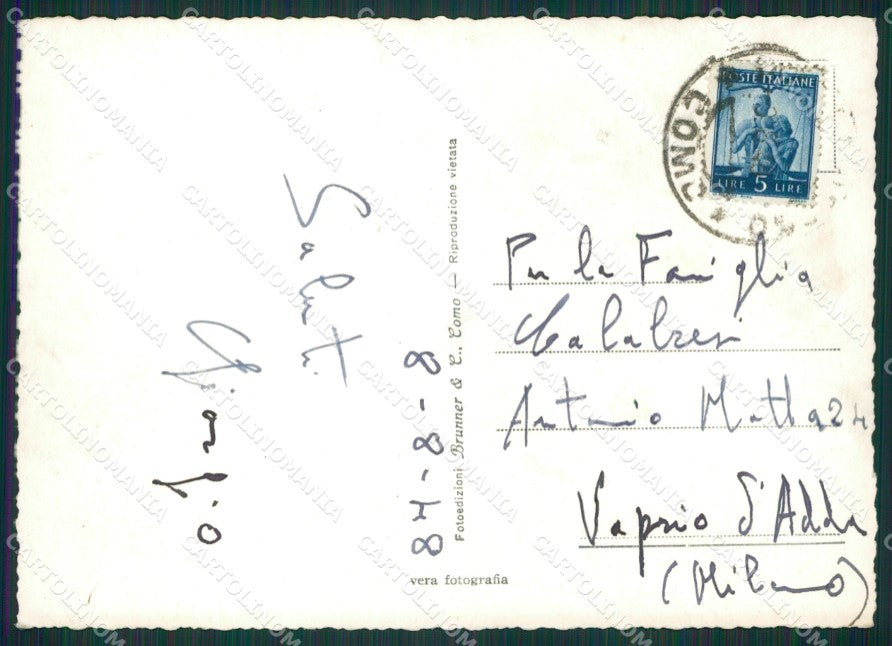 8-8-48
Saluti
Fotoedizioni Brunner & C., Como — Riproduzione vietata
vera fotografia
POSTE ITALIANE
LIRE 5 LIRE
COMO
Per la Famiglia
Calabresi
Antonio
Vaprio d'Adda
(Milano)
CARTOLINOMANIA